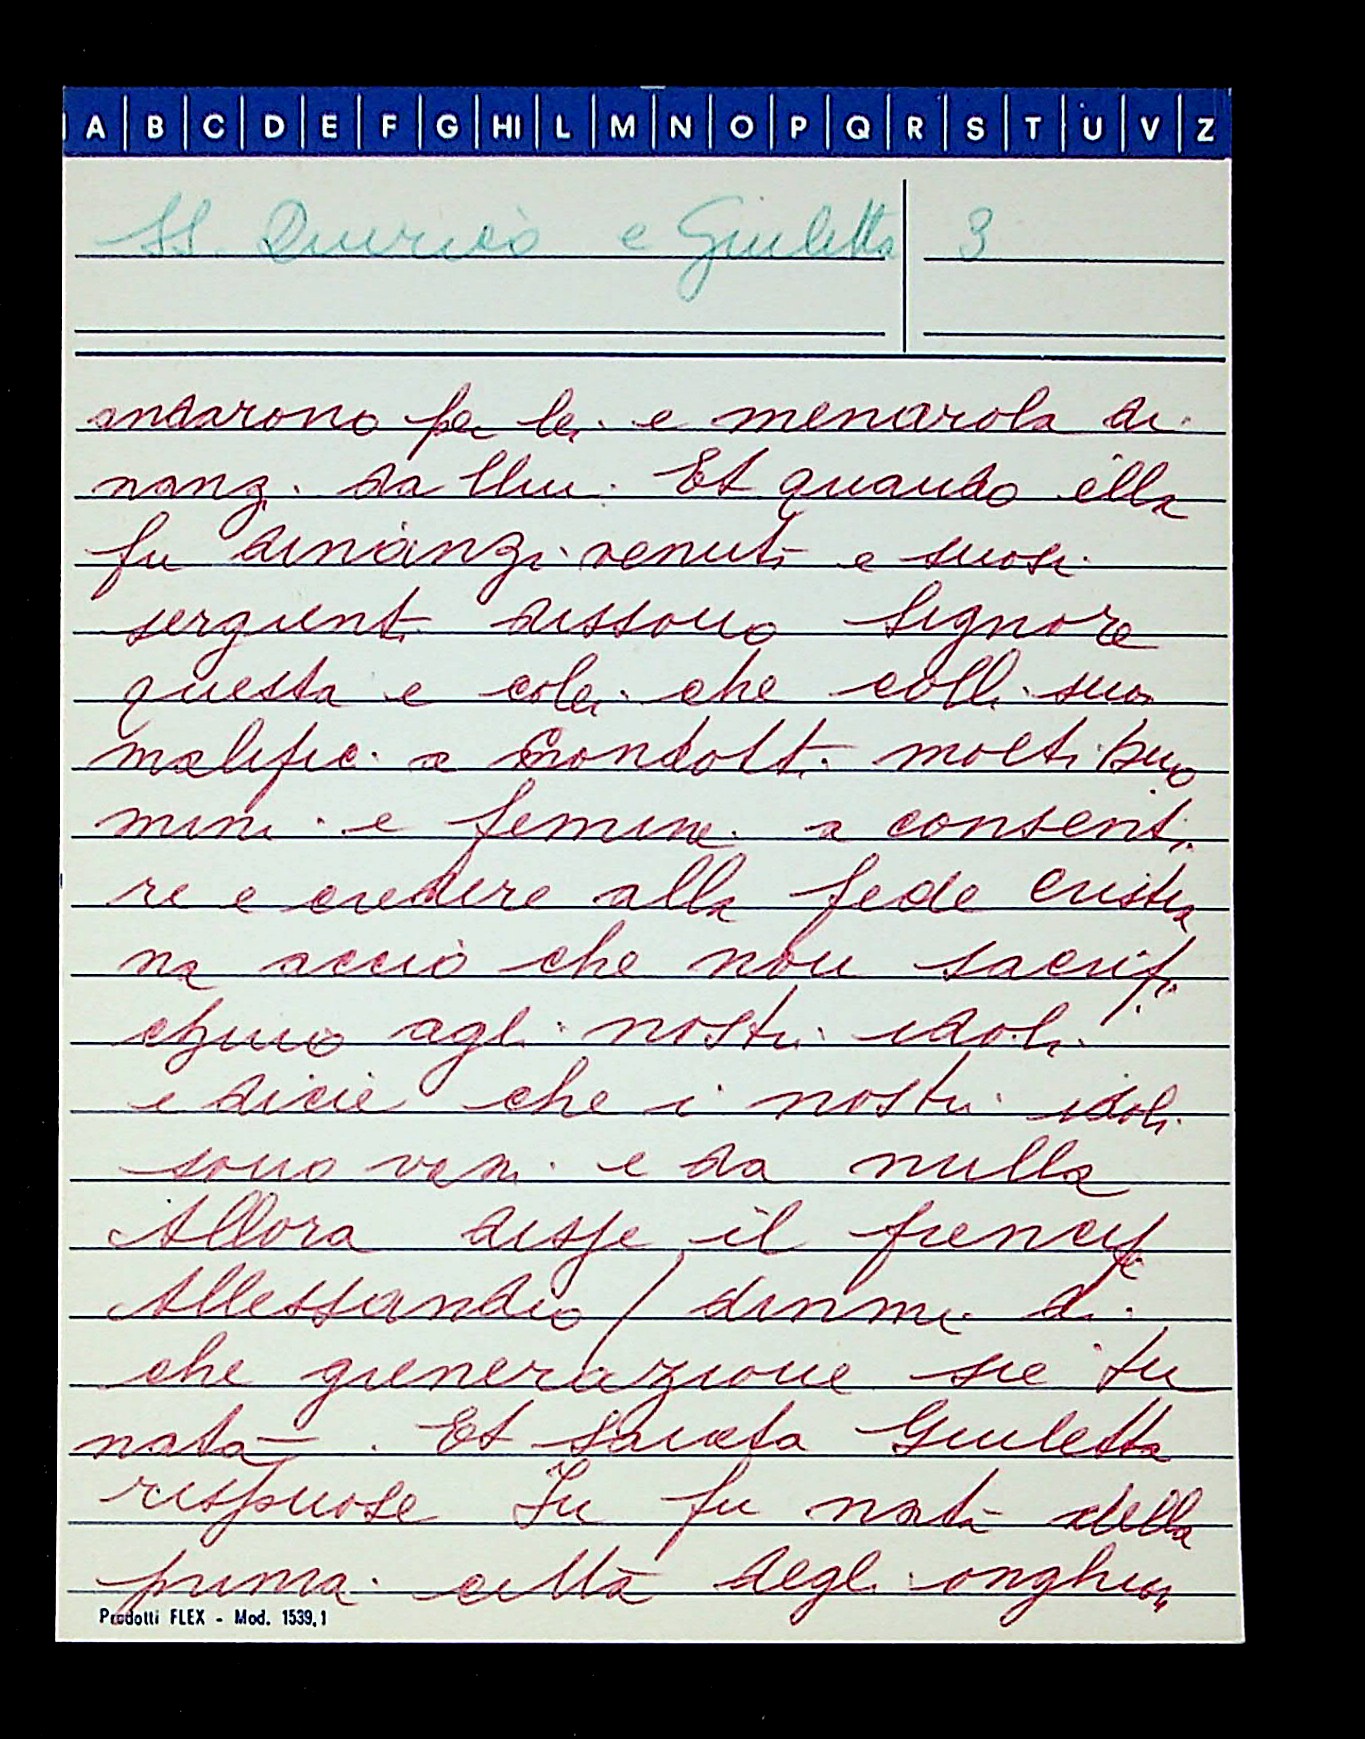 A B C D E F G HI L M N O P Q R S T U V Z
SS. Quirico e Giuletta 3
andarono per lei e menarola di
nanzi da llui. Et quando ella
fu dinanzi venuti e suosi
sergienti dissono Signore
questa e colei che colli suoi
malifici a condotti molti huo
mini e femine a consenti
re e credere alla fede cristia
na acciò che non sacrifi
chino agli nostri idoli
e dicie che i nostri idoli
sono vani e da nulla
Allora disse il prencipe
Allessandro / dinmi di
che gienerazione sie tu
nata. Et Sancta Giuletta
rispuose Iu fu nata della
prima città degli onghiari
Prodotti FLEX - Mod. 1539,1